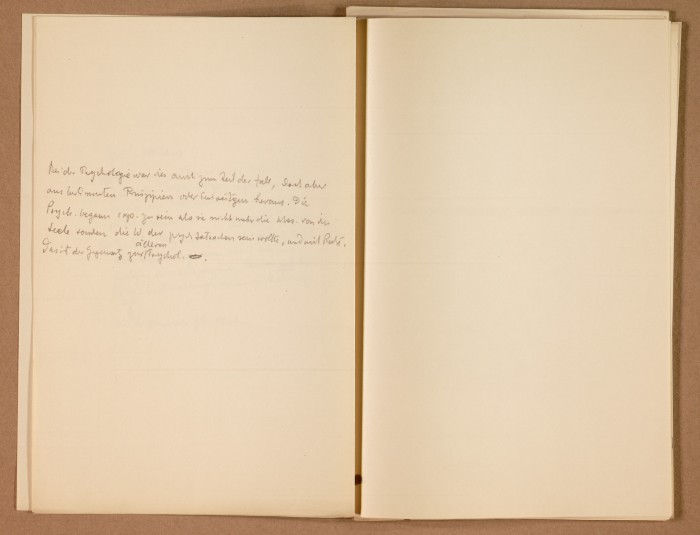 Bei der Psychologie war das auch zum Teil der Fall, dort aber
aus bestimmten Prinzipien oder heraus. Die
Psych. begann zu sein als sie nicht mehr die Wiss. von der
Seele sondern die W. der psych. Tatsachen sein wollte, und mit Recht.
Das ist der Gegensatz zur älteren Psychol.